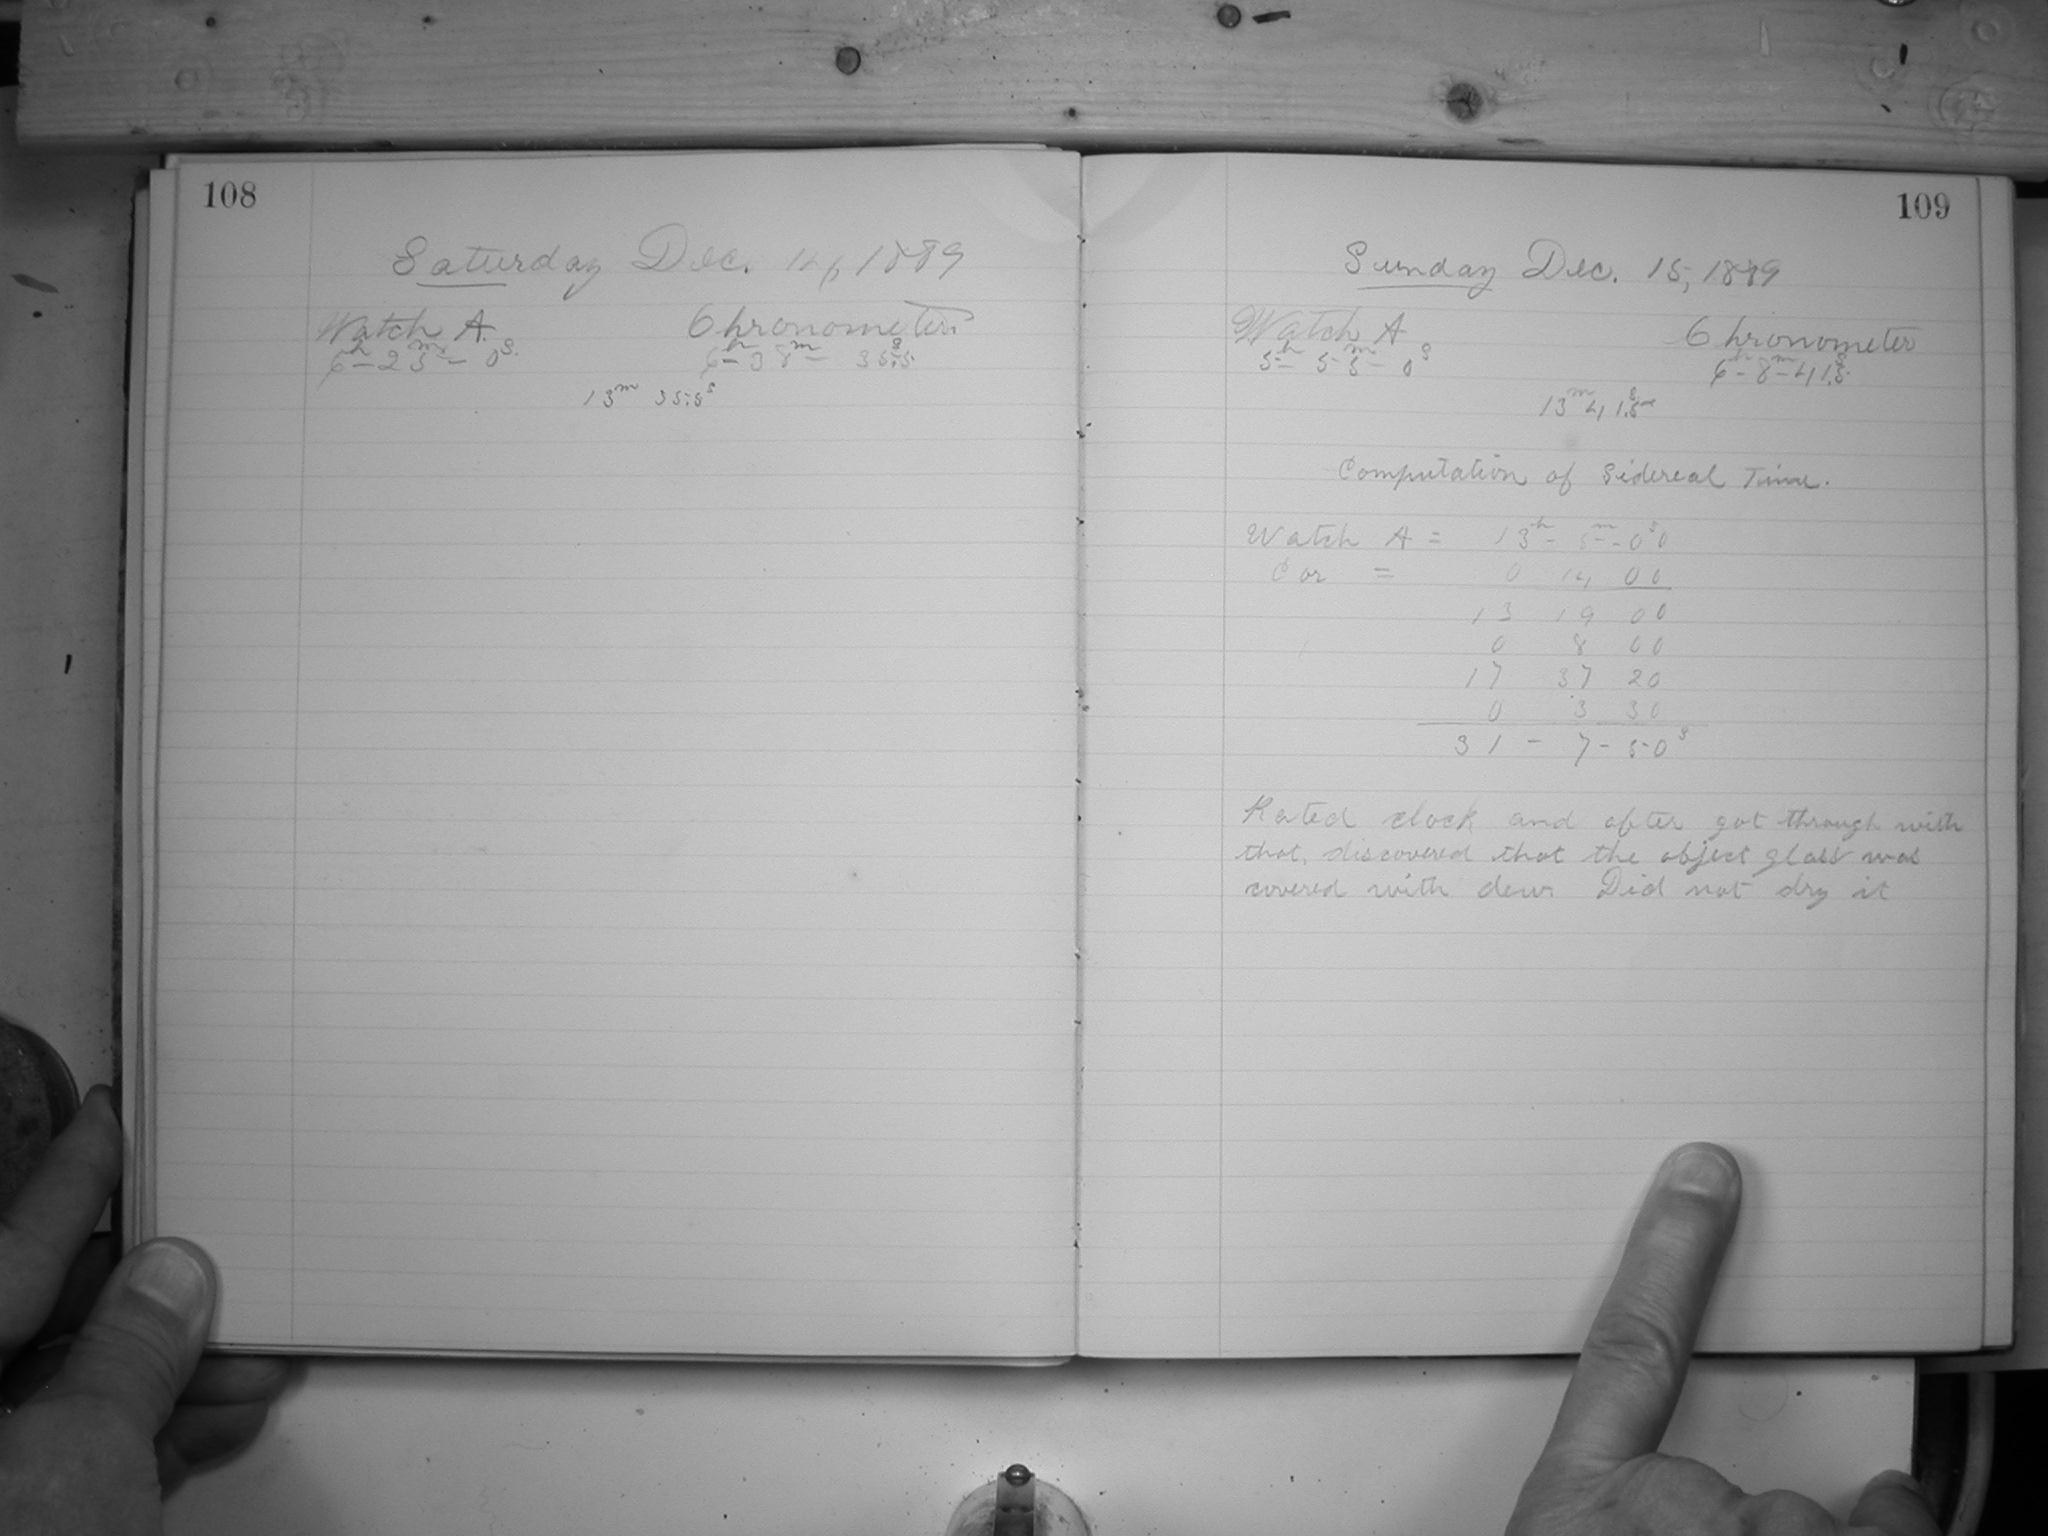 108
Saturday Dec. 14, 1889
Watch A. Chronometer
6h-25m-0s. 6h-38m-35.5s
13m 35.5s
109
Sunday Dec. 15, 1889
Watch A Chronometer
5h-55m-0s 6h-8m-41.5s
13m 41.5s
Computation of Sidereal Time.
Watch A = 13h-5m-00s
Cor = 0 14 00
13 19 00
0 8 00
17 37 20
0 3 30
31-7-50s
Rated clock and after got through with
that, discovered that the object glass was
covered with dew. Did not dry it